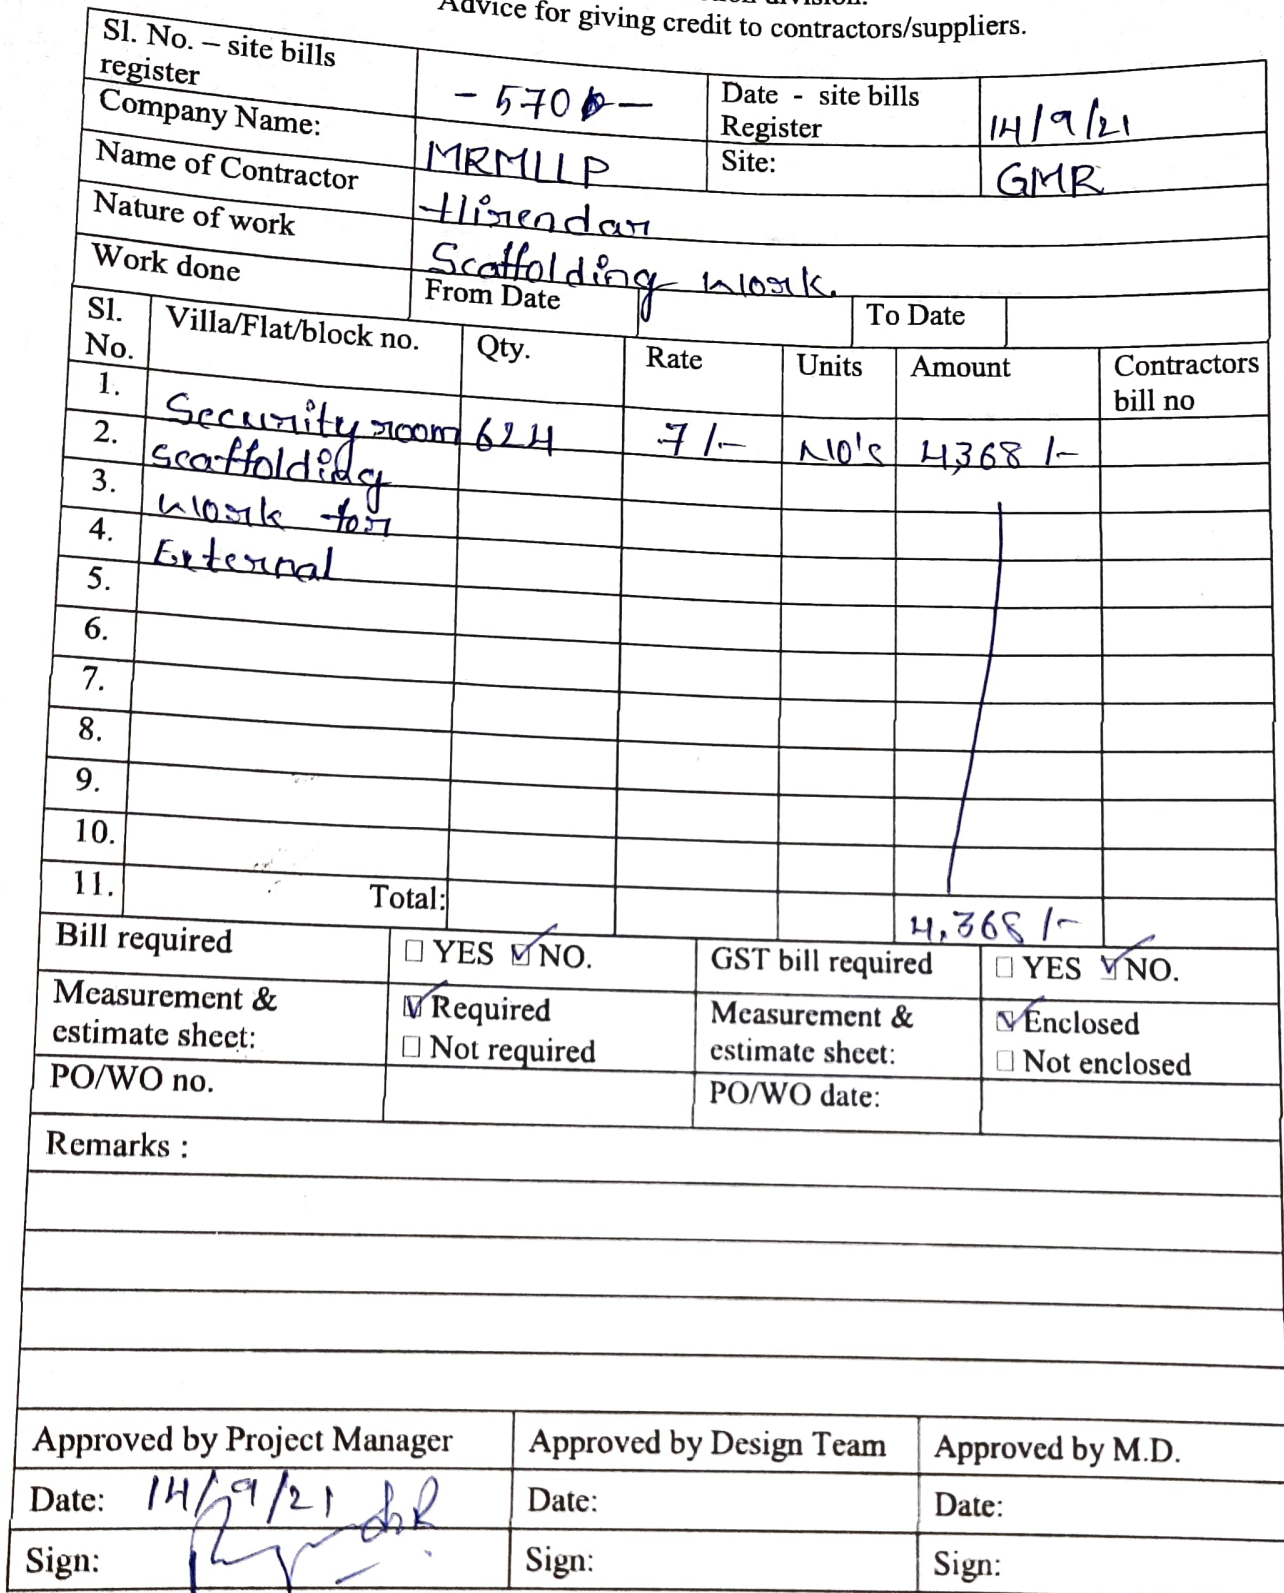 Advice for giving credit to contractors/suppliers.
Sl. No. – site bills register - 570 — Date - site bills Register 14/9/21
Company Name: MRMLLP Site: GMR
Name of Contractor Hirendar
Nature of work Scaffolding work.
Work done From Date To Date
Sl. No. Villa/Flat/block no. Qty. Rate Units Amount Contractors bill no
1. Security room 624 7/- NO's 4,368/-
2. scaffolding
3. work for
4. External
5.
6.
7.
8.
9.
10.
11. Total: 4,368/-
Bill required ☐ YES ☑ NO. GST bill required ☐ YES ☑ NO.
Measurement & estimate sheet: ☑ Required Measurement & estimate sheet: ☑ Enclosed
☐ Not required ☐ Not enclosed
PO/WO no. PO/WO date:
Remarks :
Approved by Project Manager Approved by Design Team Approved by M.D.
Date: 14/9/21 Date: Date:
Sign: Sign: Sign: